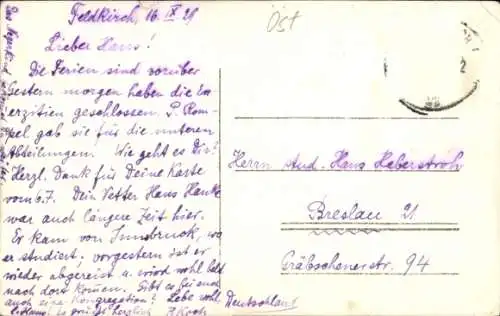 Feldkirch, 16. IX 29
Lieber Hans!
Die Ferien sind vorüber
Gestern morgen haben die Ex
erzitien geschlossen. P. Rom-
pel gab sie für die unteren
Abteilungen. Wie geht es Dir?
Herzl. Dank für Deine Karte
vom 6.7. Dein Vetter Hans Hanke
war auch längere Zeit hier.
Er kam von Innsbruck, wo
er studiert; vorgestern ist er
wieder abgereist u. wird wohl bald
nach dort kommen. Gibt es bei euch
auch eine Kongregation? Lebe wohl,
l. Hans! Es grüßt herzlich P. Koch
Ost
Herrn Aud. Hans Haberstroh
Breslau 21
Gräbschenerstr. 94
Deutschland